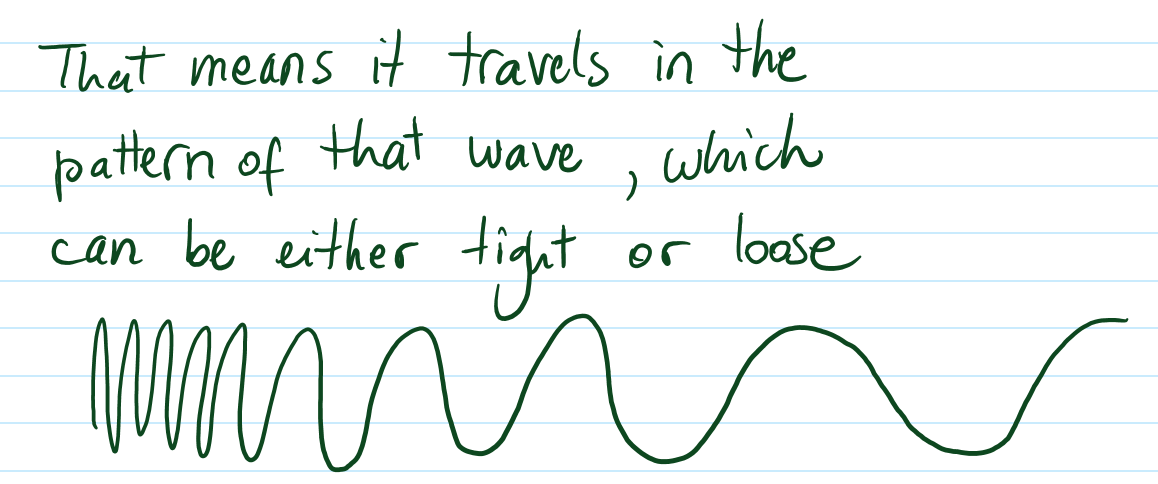 That means it travels in the
pattern of that wave, which
can be either tight or loose